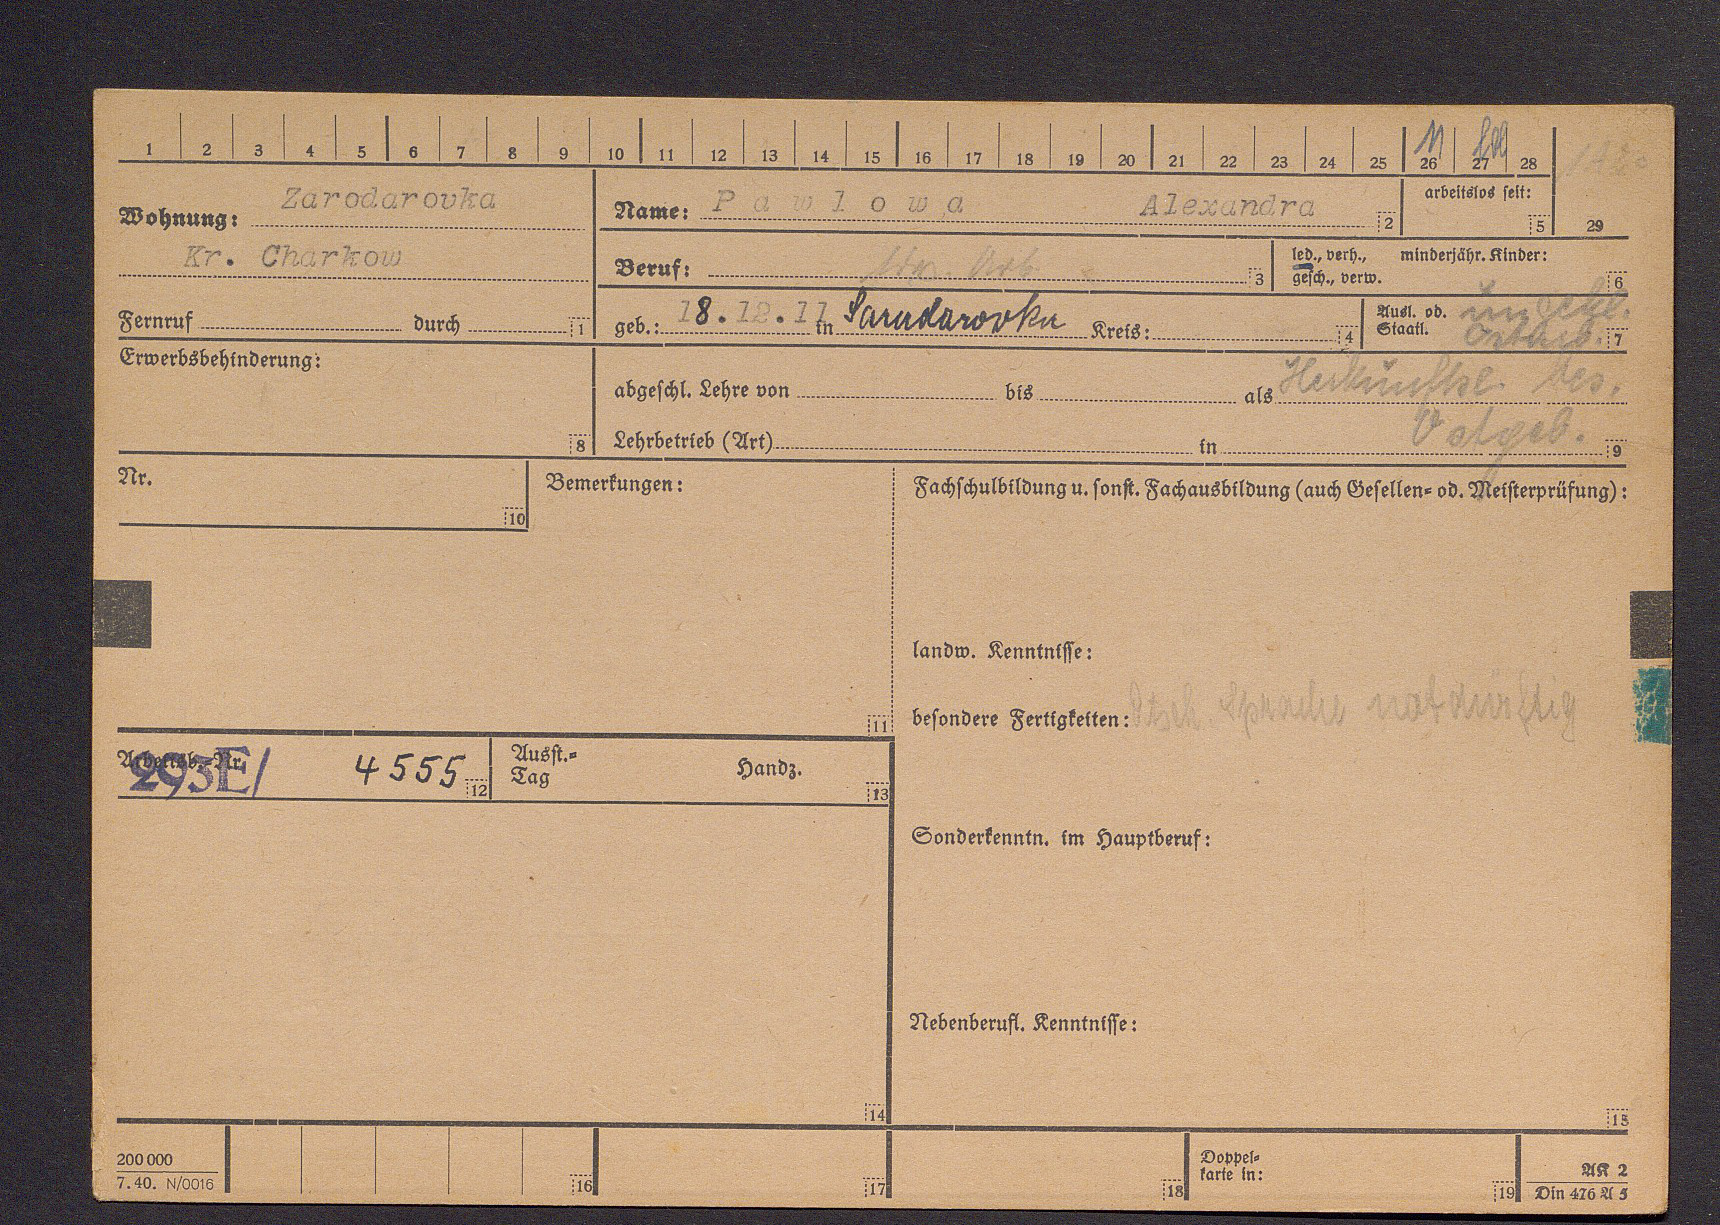 1 2 3 4 5 6 7 8 9 10 11 12 13 14 15 16 17 18 19 20 21 22 23 24 25 26 27 28
Wohnung: Zarodarovka
Kr. Charkow
Fernruf durch 1
Name: Pawlowa Alexandra 2
arbeitslos seit: 5
29
Beruf: Arb. 3
led., verh., gesch., verw.
minderjähr. Kinder: 6
geb.: 18.12.11 in Sarudarovka Kreis: 4
Ausl. od. Staatl. ungekl. Ostarb. 7
Erwerbsbehinderung: 8
abgeschl. Lehre von bis als Herkunftsl. bes.
Ostgeb.
Lehrbetrieb (Art) in 9
Nr. 10
Bemerkungen: 11
Fachschulbildung u. sonst. Fachausbildung (auch Gesellen- od. Meisterprüfung):
landw. Kenntnisse:
besondere Fertigkeiten: Dtsch Sprache notdürftig
Arbeitsb.-Nr. 293E/ 4555 12
Ausst.-Tag Handz. 13
Sonderkenntn. im Hauptberuf:
Nebenberufl. Kenntnisse:
14
15
200 000
7. 40. N/0016
16
17
18
Doppelkarte in: 19
AK 2
Din 476 A 5